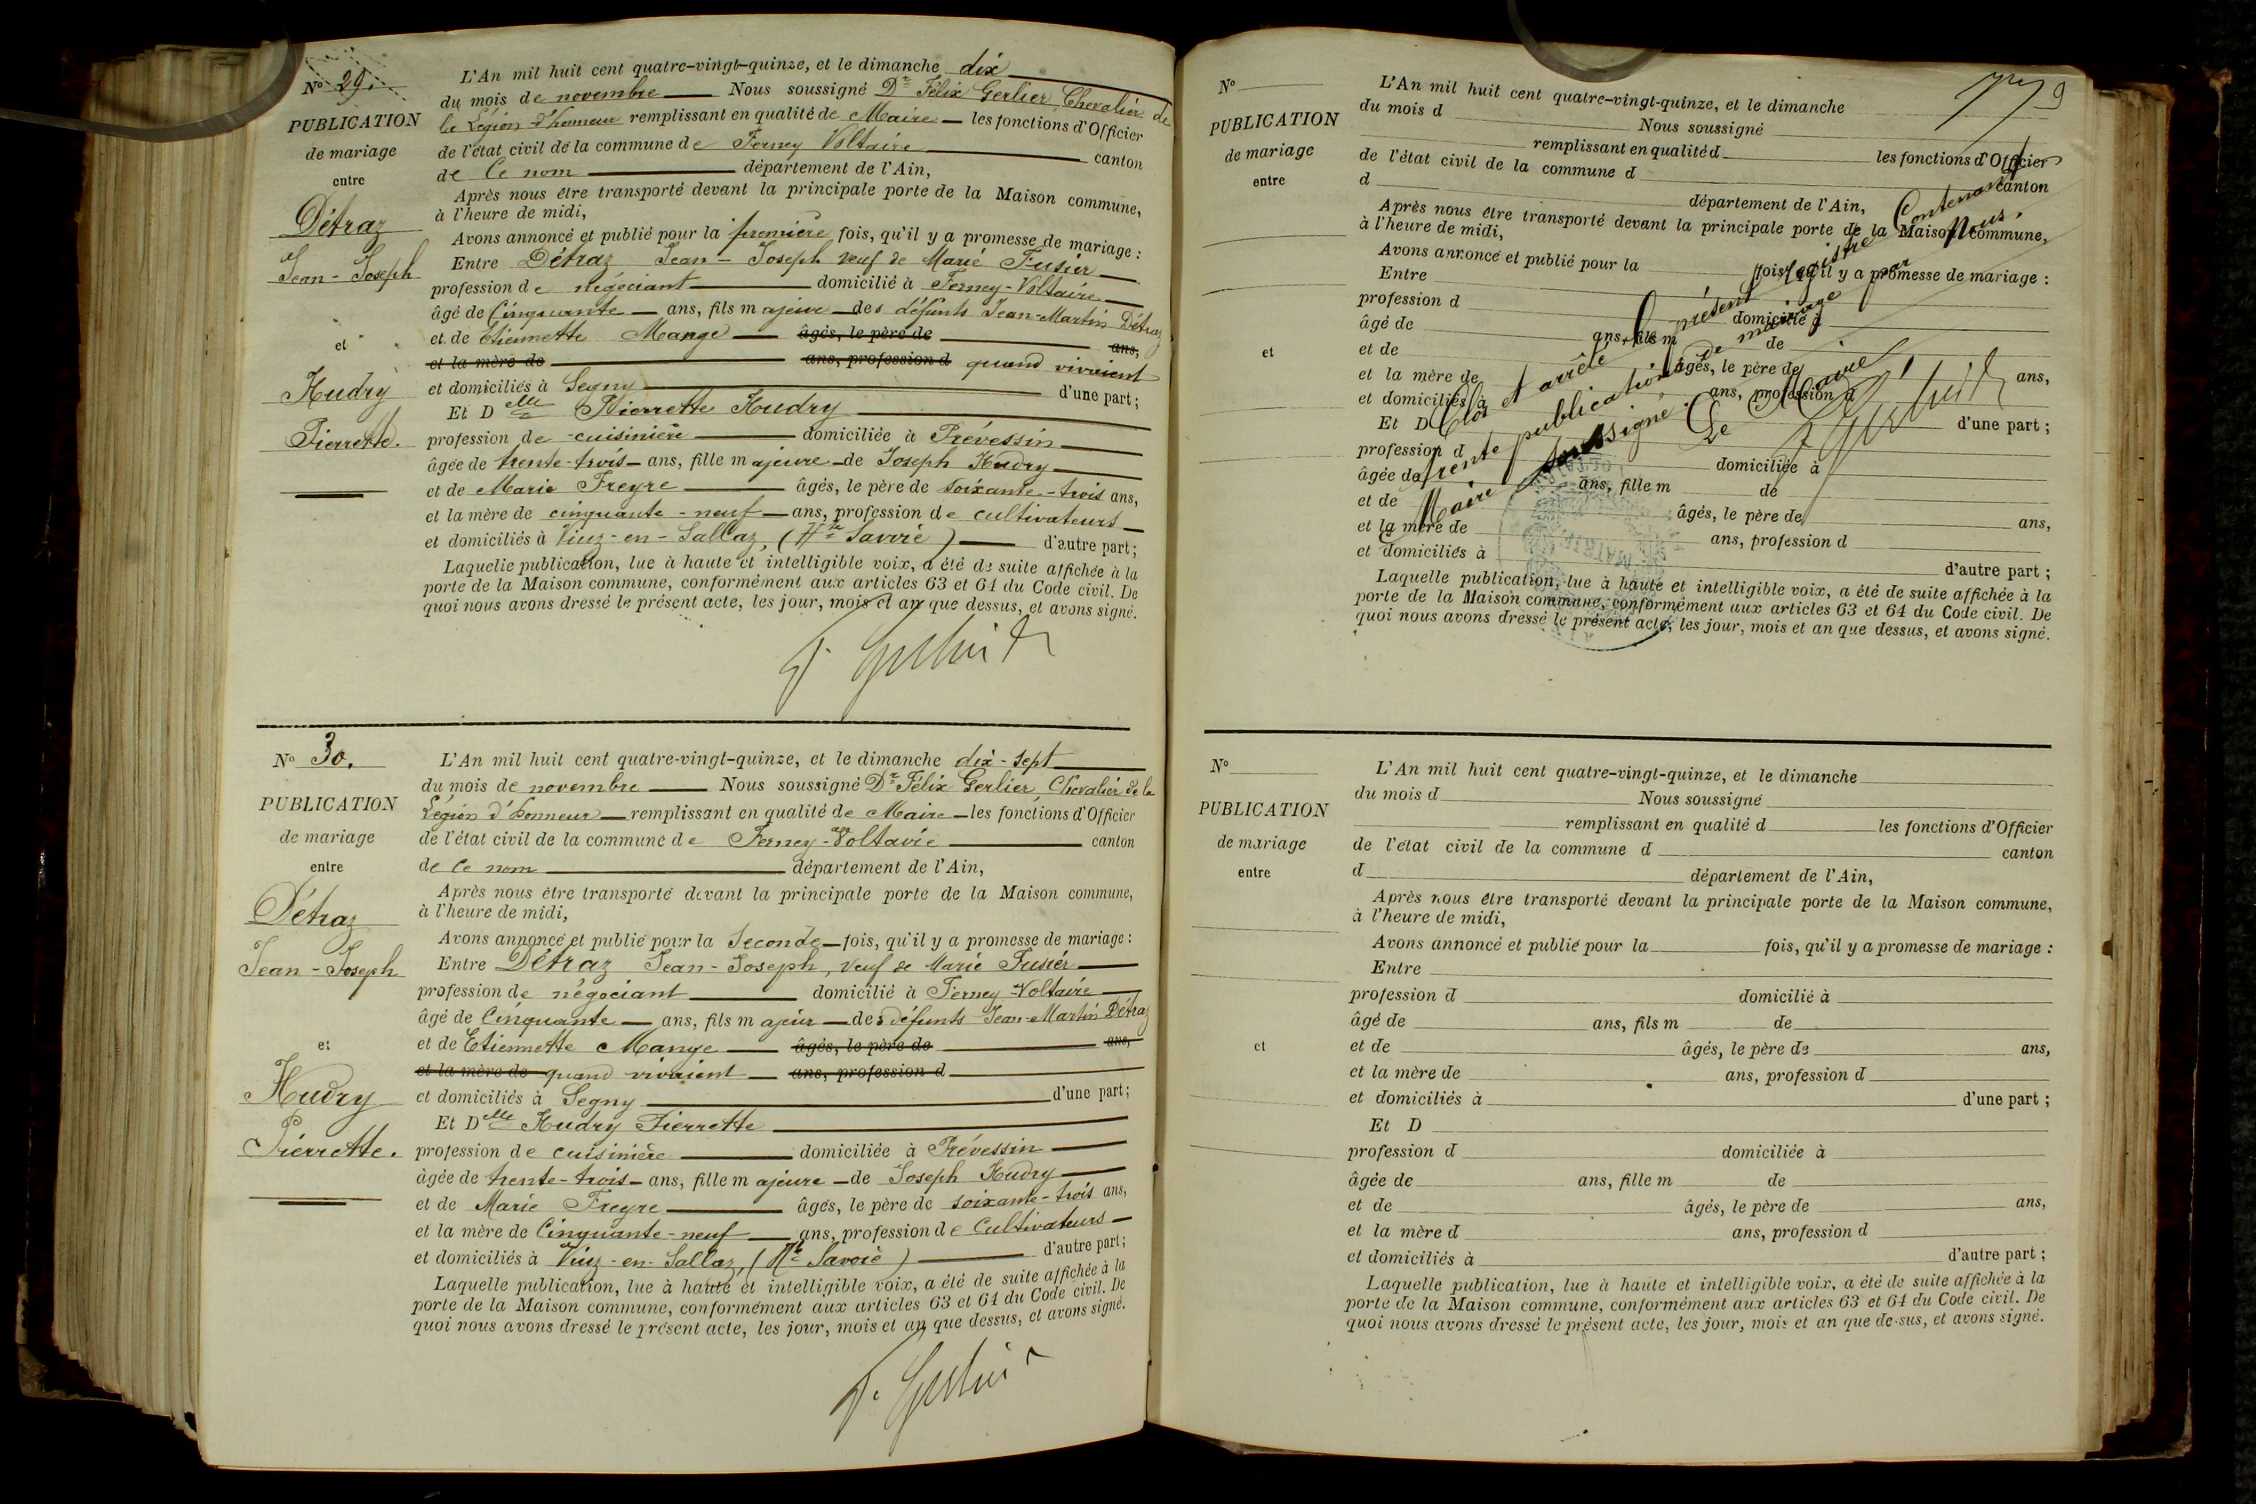 N° 29.
PUBLICATION
de mariage
entre
Détraz
Jean-Joseph
et
Hudry
Pierrette.
L'An mil huit cent quatre-vingt-quinze, et le dimanche dix
du mois de novembre Nous soussigné Dr Félix Gerlier Chevalier de
la Légion d'honneur remplissant en qualité de Maire les fonctions d'Officier
de l'état civil de la commune de Ferney Voltaire canton
de ce nom département de l'Ain,
Après nous être transporté devant la principale porte de la Maison commune,
à l'heure de midi,
Avons annoncé et publié pour la première fois, qu'il y a promesse de mariage :
Entre Détraz Jean-Joseph veuf de Marie Fusier
profession de négociant domicilié à Ferney-Voltaire
âgé de Cinquante ans, fils majeur des défunts Jean-Martin Détraz
et de Etiennette Mange âgés, le père de ans,
et la mère de ans, profession d quand vivaient
et domiciliés à Segny d'une part ;
Et Delle Pierrette Hudry
profession de cuisinière domiciliée à Prévessin
âgée de trente-trois ans, fille majeure de Joseph Hudry
et de Marie Freyre âgés, le père de soixante-trois ans,
et la mère de cinquante-neuf ans, profession de cultivateurs
et domiciliés à Viuz-en-Sallaz, (Hte Savoie) d'autre part ;
Laquelle publication, lue à haute et intelligible voix, a été de suite affichée à la
porte de la Maison commune, conformément aux articles 63 et 64 du Code civil. De
quoi nous avons dressé le présent acte, les jour, mois et an que dessus, et avons signé.
F. Gerlier Dr
N° 30.
PUBLICATION
de mariage
entre
Détraz
Jean-Joseph
et
Hudry
Pierrette.
L'An mil huit cent quatre-vingt-quinze, et le dimanche dix-sept
du mois de novembre Nous soussigné Dr Félix Gerlier Chevalier de la
Légion d'honneur remplissant en qualité de Maire les fonctions d'Officier
de l'état civil de la commune de Ferney-Voltaire canton
de ce nom département de l'Ain,
Après nous être transporté devant la principale porte de la Maison commune,
à l'heure de midi,
Avons annoncé et publié pour la Seconde fois, qu'il y a promesse de mariage :
Entre Détraz Jean-Joseph, veuf de Marie Fusier
profession de négociant domicilié à Ferney-Voltaire
âgé de Cinquante ans, fils majeur des défunts Jean-Martin Détraz
et de Etiennette Mange âgés, le père de ans,
et la mère de quand vivaient ans, profession d
et domiciliés à Segny d'une part ;
Et Delle Hudry Pierrette
profession de cuisinière domiciliée à Prévessin
âgée de trente-trois ans, fille majeure de Joseph Hudry
et de Marie Freyre âgés, le père de soixante-trois ans,
et la mère de Cinquante-neuf ans, profession de Cultivateurs
et domiciliés à Viuz-en-Sallaz, (Hte Savoie) d'autre part ;
Laquelle publication, lue à haute et intelligible voix, a été de suite affichée à la
porte de la Maison commune, conformément aux articles 63 et 64 du Code civil. De
quoi nous avons dressé le présent acte, les jour, mois et an que dessus, et avons signé.
F. Gerlier
9
N°
PUBLICATION
de mariage
entre
et
L'An mil huit cent quatre-vingt-quinze, et le dimanche
du mois d Nous soussigné
remplissant en qualité d les fonctions d'Officier
de l'état civil de la commune d canton
d département de l'Ain,
Après nous être transporté devant la principale porte de la Maison commune,
à l'heure de midi,
Avons annoncé et publié pour la fois, qu'il y a promesse de mariage :
Entre
profession d domicilié à
âgé de ans, fils m de
et de âgés, le père de ans,
et la mère de ans, profession d
et domiciliés à d'une part ;
Et D
profession d domiciliée à
âgée de ans, fille m de
et de âgés, le père de ans,
et la mère de ans, profession d
et domiciliés à d'autre part ;
Laquelle publication, lue à haute et intelligible voix, a été de suite affichée à la
porte de la Maison commune, conformément aux articles 63 et 64 du Code civil. De
quoi nous avons dressé le présent acte, les jour, mois et an que dessus, et avons signé.
Clos et arrêté le présent registre Contenant
trente publications de mariage par Nous,
Maire soussigné.
Le Maire,
F Gerlier Dr
MAIRIE
N°
PUBLICATION
de mariage
entre
et
L'An mil huit cent quatre-vingt-quinze, et le dimanche
du mois d Nous soussigné
remplissant en qualité d les fonctions d'Officier
de l'état civil de la commune d canton
d département de l'Ain,
Après nous être transporté devant la principale porte de la Maison commune,
à l'heure de midi,
Avons annoncé et publié pour la fois, qu'il y a promesse de mariage :
Entre
profession d domicilié à
âgé de ans, fils m de
et de âgés, le père de ans,
et la mère de ans, profession d
et domiciliés à d'une part ;
Et D
profession d domiciliée à
âgée de ans, fille m de
et de âgés, le père de ans,
et la mère d ans, profession d
et domiciliés à d'autre part ;
Laquelle publication, lue à haute et intelligible voix, a été de suite affichée à la
porte de la Maison commune, conformément aux articles 63 et 64 du Code civil. De
quoi nous avons dressé le présent acte, les jour, mois et an que dessus, et avons signé.